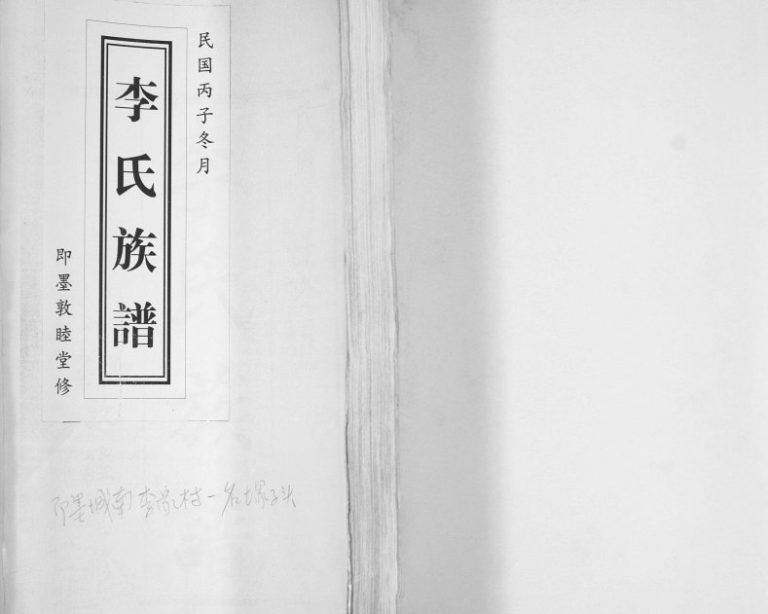 民国丙子冬月
李氏族譜
即墨敦睦堂修
即墨城南李家村一名塚子头